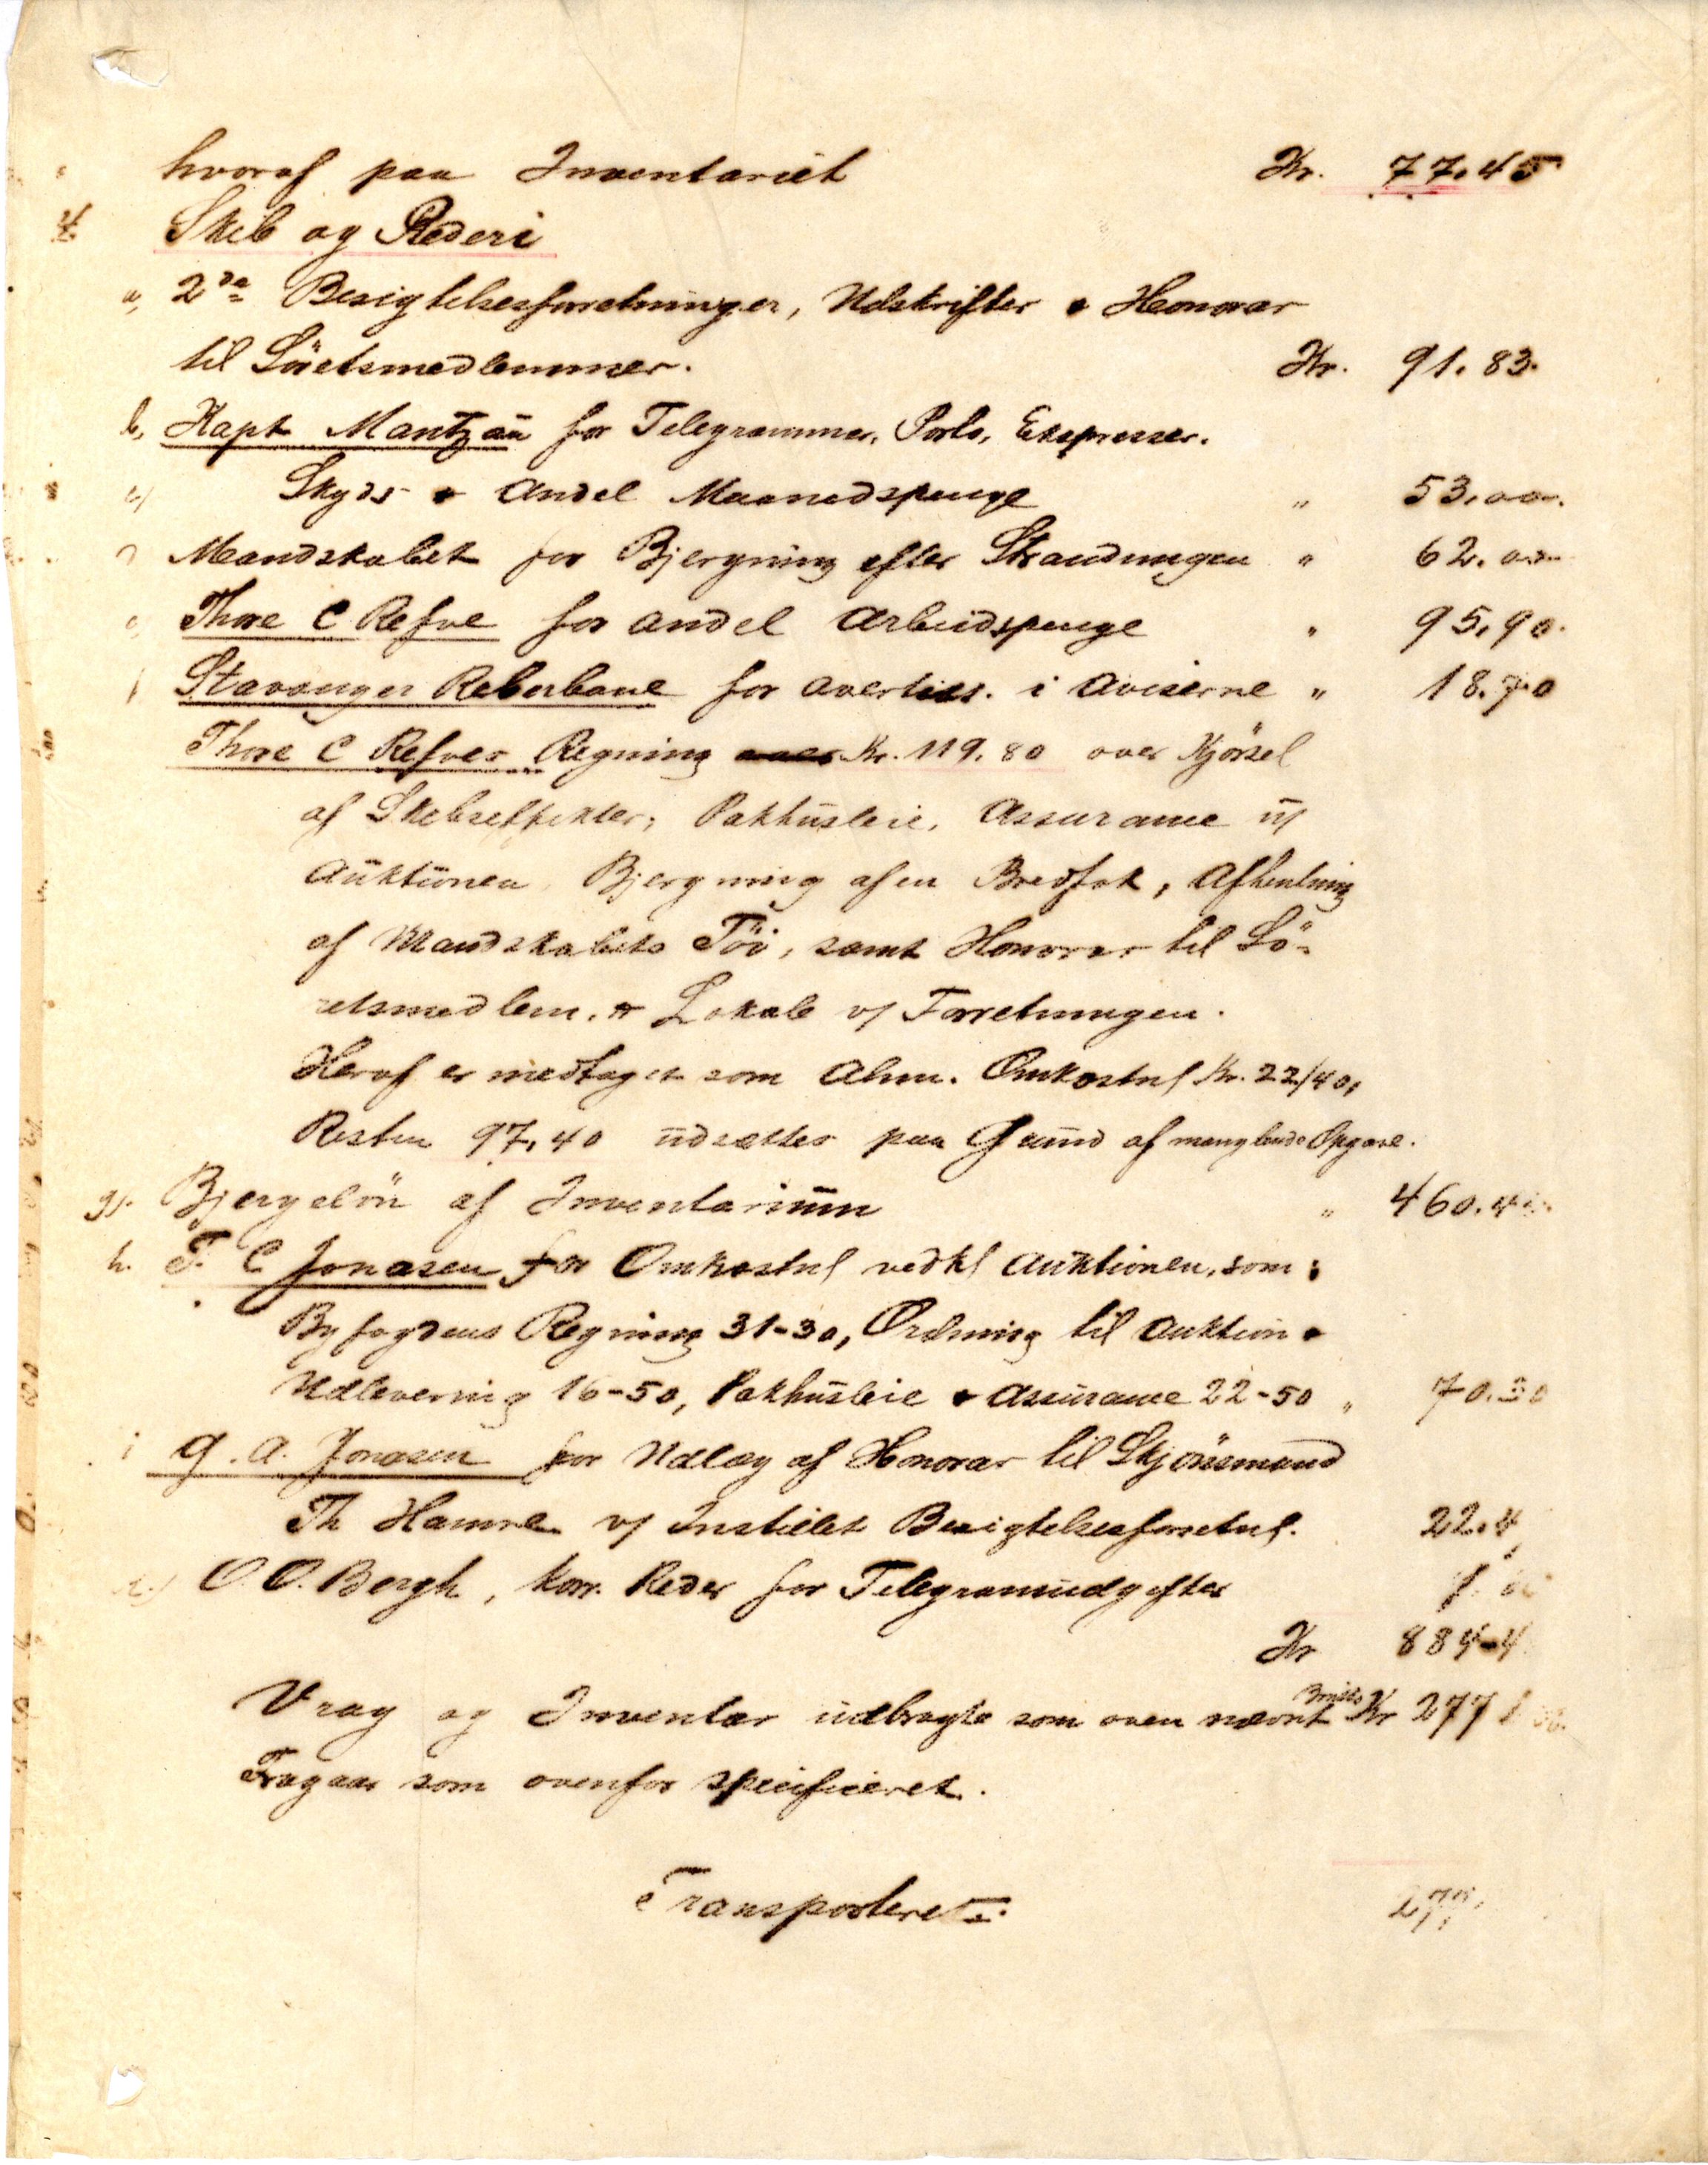 hvoraf paa Inventariet Kr. 77.45
4. Skib og Rederi
a, 2de Besigtelsesforretninger, Udskrifter & Honorar
til Söretsmedlemmer. Kr. 91.83.
b, Kapt Mantzau for Telegrammer, Porto, Expresser.
c/ Skyds & Andel Maanedspenge " 53.00.
d Mandskabet for Bjergning efter Strandningen " 62.00
e, Thore C Refve for Andel Arbeidspenge " 95,90.
f Stavanger Reberbane for Averties. i Aviserne " 18.70
Thore C Refves Regning Kr. 119.80 over Kjörsel
af Skibseffekter, Pakhusleie, Assurance v/
Auktionen, Bjergning af en Bredfok, Afhentning
af Mandskabets Töi, samt Honorar til Sö-
retsmedlem. & Lokale v/ Forretningen.
Heraf er medtaget som Alm. Omkostnf Kr. 22/40,
Resten 97,40 udsættes paa Grund af manglende Opgave.
g/. Bjergelön af Inventarium " 460.
h. T. C Jonasen for Omkostnf vedkf Auktionen, som:
Byfogdens Regning 31-30, Ordning til Auktion &
Udlevering 16-50, Pakhusleie & Assurance 22-50 " 70.30
i G. A. Jonasen for Udlæg af Honorar til Skjönsmand
Th Hamre v/ Instillet Besigtelsesforretnf. 22.4
O. O. Bergh, Korr. Reder for Telegramudgifter
Kr 884-4
Vrag og Inventar udbragte som oven nævnt Brutto Kr 277
Fragaar som ovenfor specificeret.
Transporteret 277